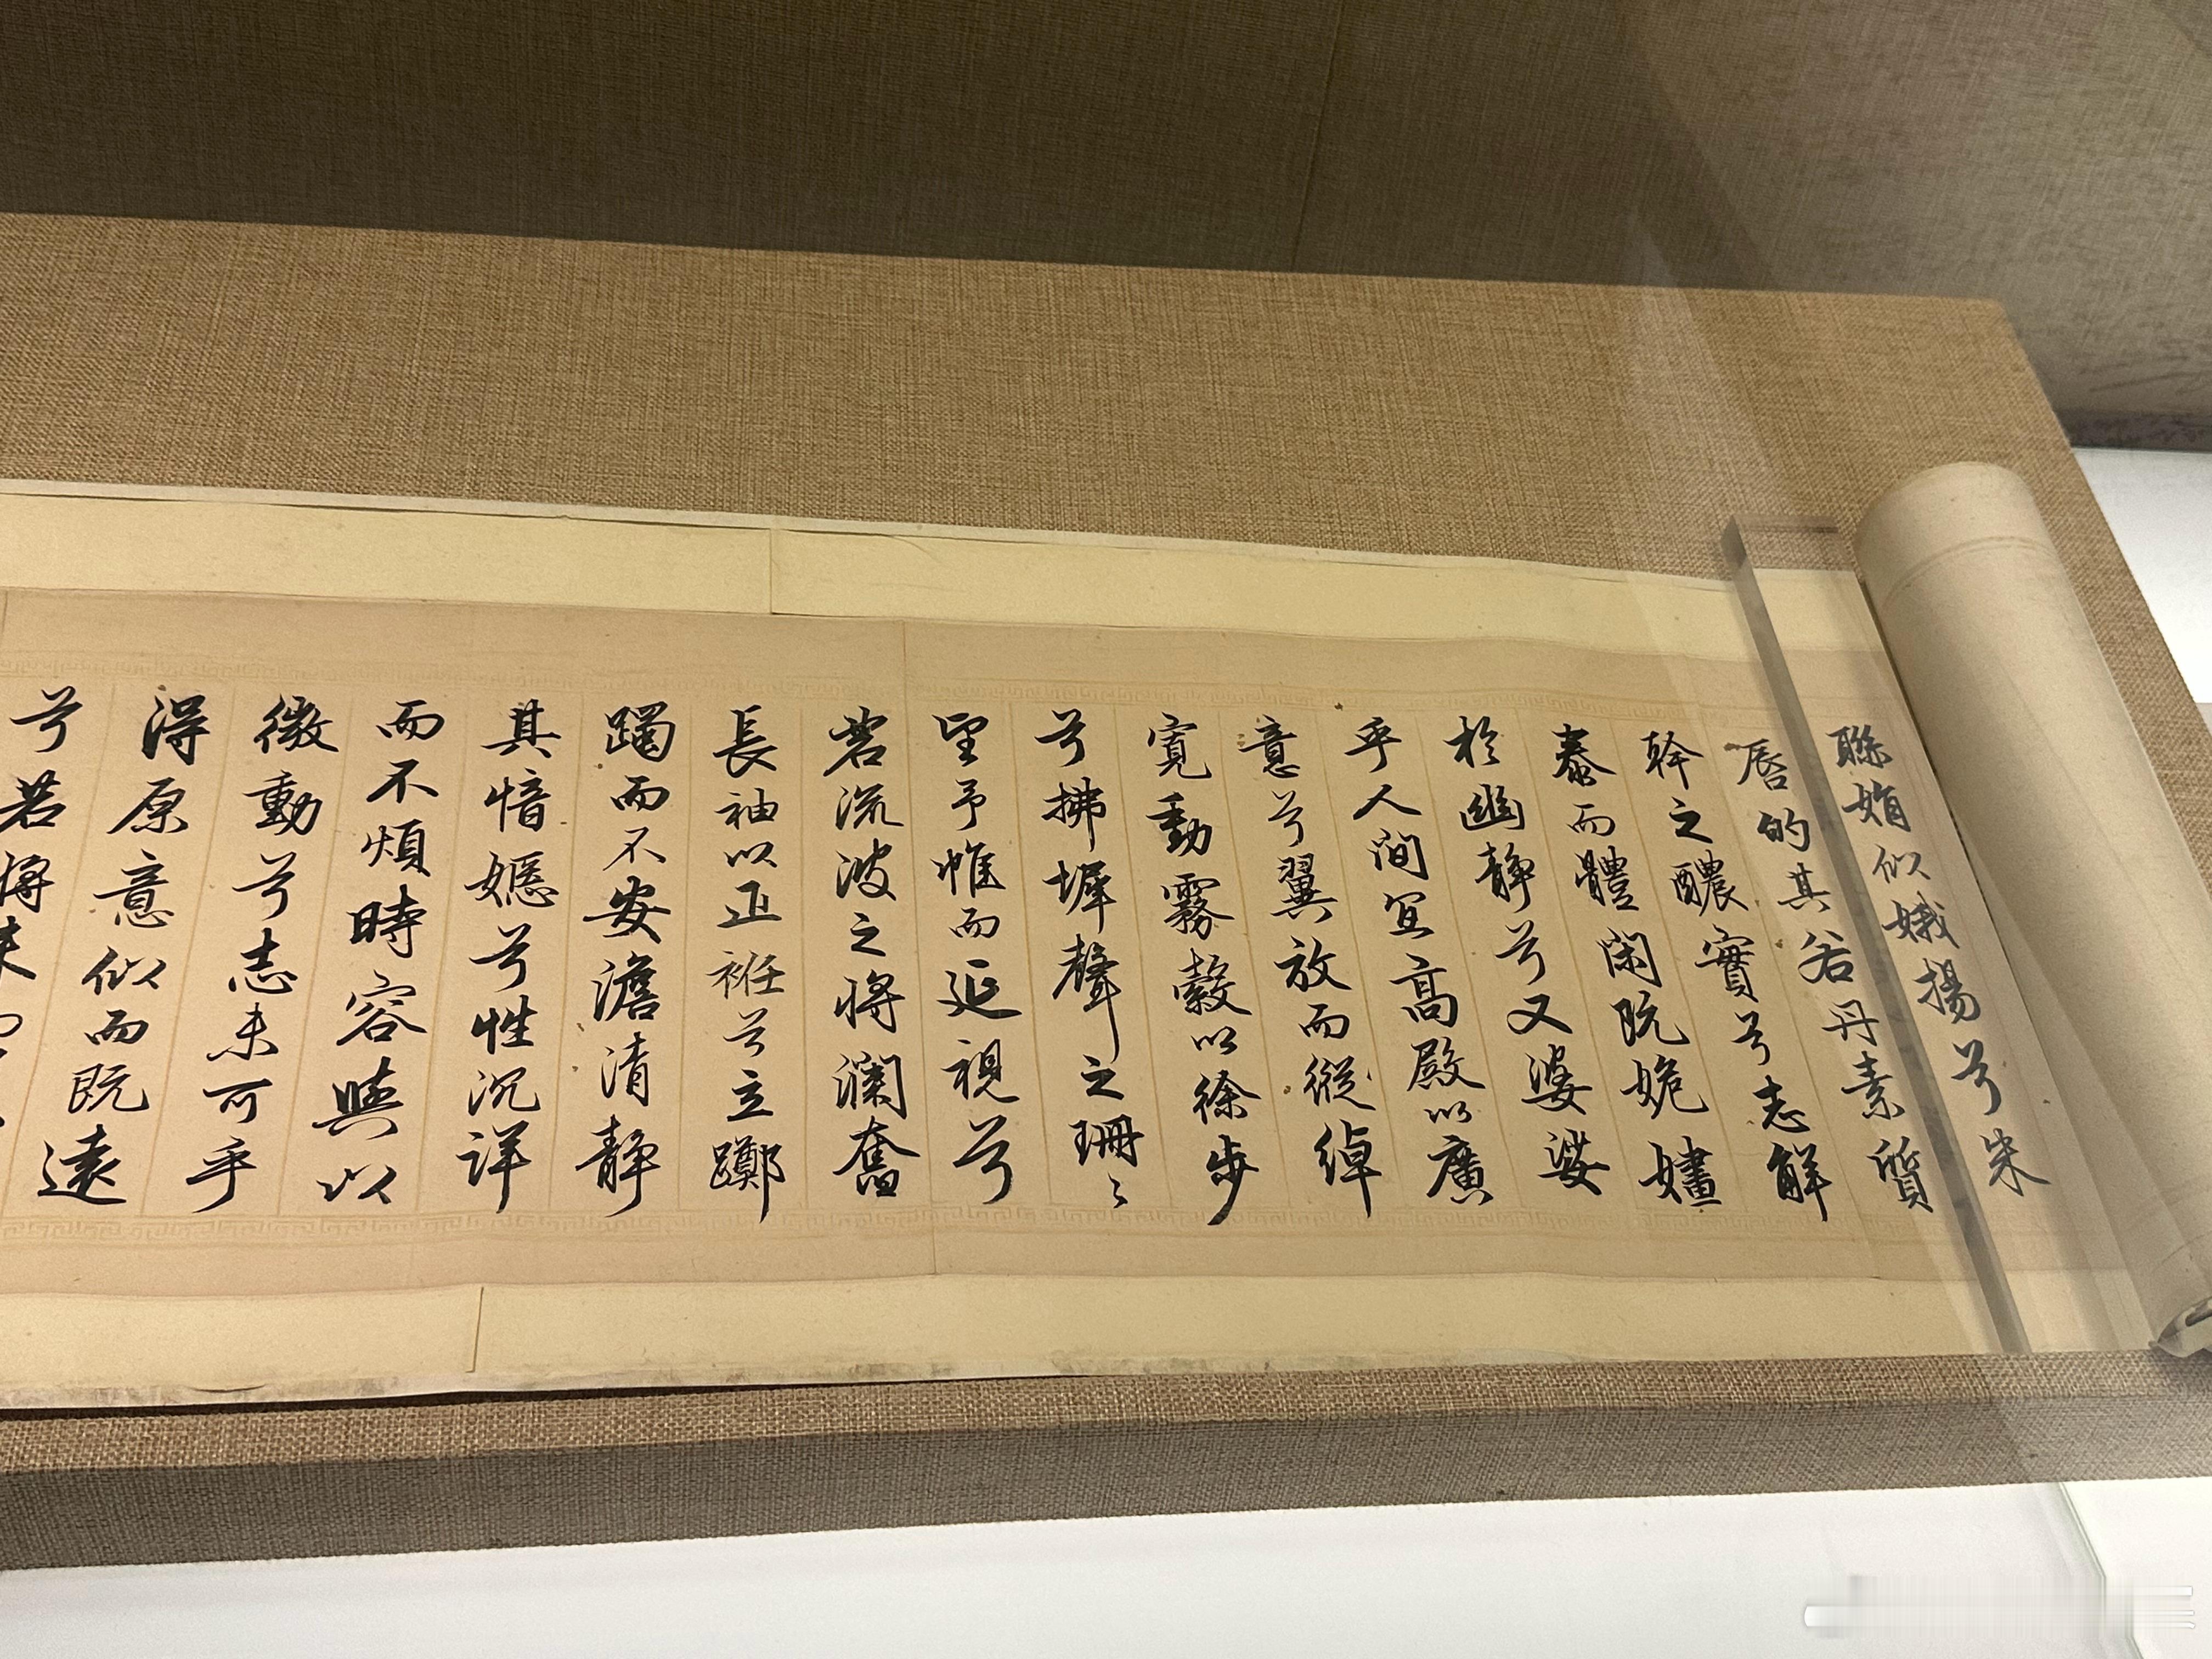 聯娟似娥揚兮朱
唇的其若丹素質
幹之醲實兮志解
泰而體閑既姽嫿
於幽靜兮又婆娑
乎人間宜高殿以廣
意兮翼放而縱綽
寬動霧縠以徐步
兮拂墀聲之珊〻
望予帷而延視兮
若流波之將瀾奮
長袖以正衽兮立躑
躅而不安澹清靜
其愔嫕兮性沉詳
而不煩時容與以
微動兮志未可乎
得原意似而既遠
兮若將来